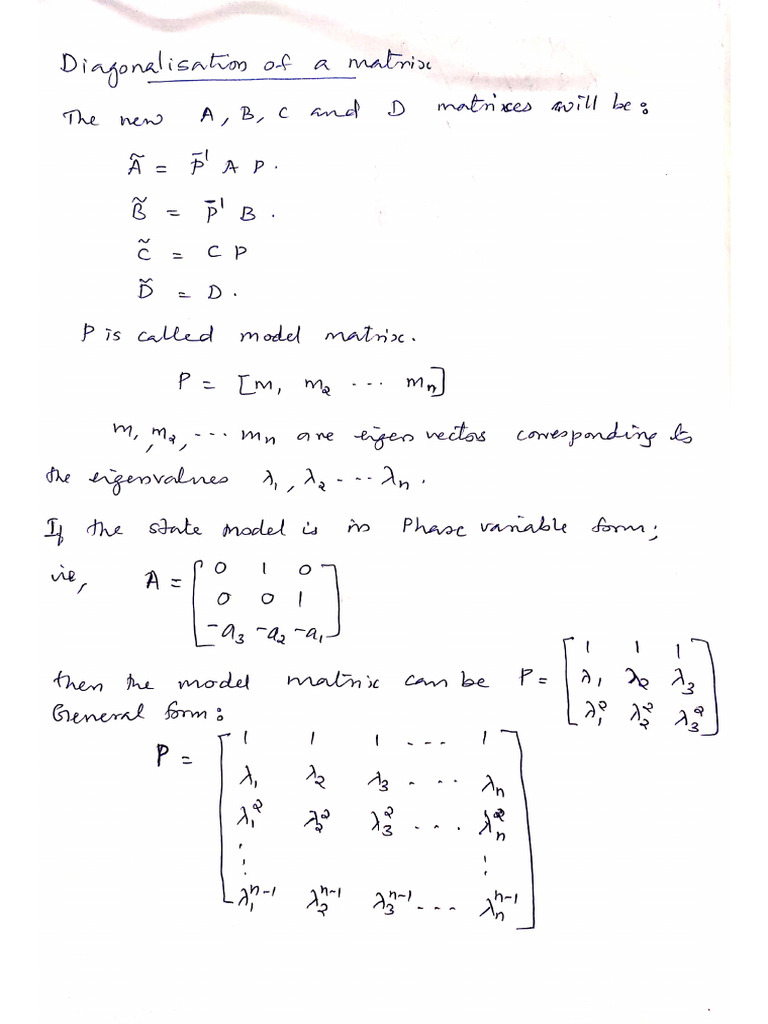 Diagonalisation of a matrix
The new A, B, C and D matrixes will be:
Ã = P⁻¹ A P.
B̃ = P⁻¹ B.
C̃ = C P
D̃ = D.
P is called model matrix.
P = [m₁ m₂ ... mₙ]
m₁, m₂, ... mₙ are eigen vectors corresponding to
the eigenvalues λ₁, λ₂ ... λₙ.
If the state model is in Phase variable form;
ie, A = [0 1 0
0 0 1
-a₃ -a₂ -a₁]
then the model matrix can be P = [1 1 1
λ₁ λ₂ λ₃
λ₁² λ₂² λ₃²]
General form:
P = [1 1 1 ... 1
λ₁ λ₂ λ₃ ... λₙ
λ₁² λ₂² λ₃² ... λₙ²
⋮ ⋮
λ₁ⁿ⁻¹ λ₂ⁿ⁻¹ λ₃ⁿ⁻¹ ... λₙⁿ⁻¹]